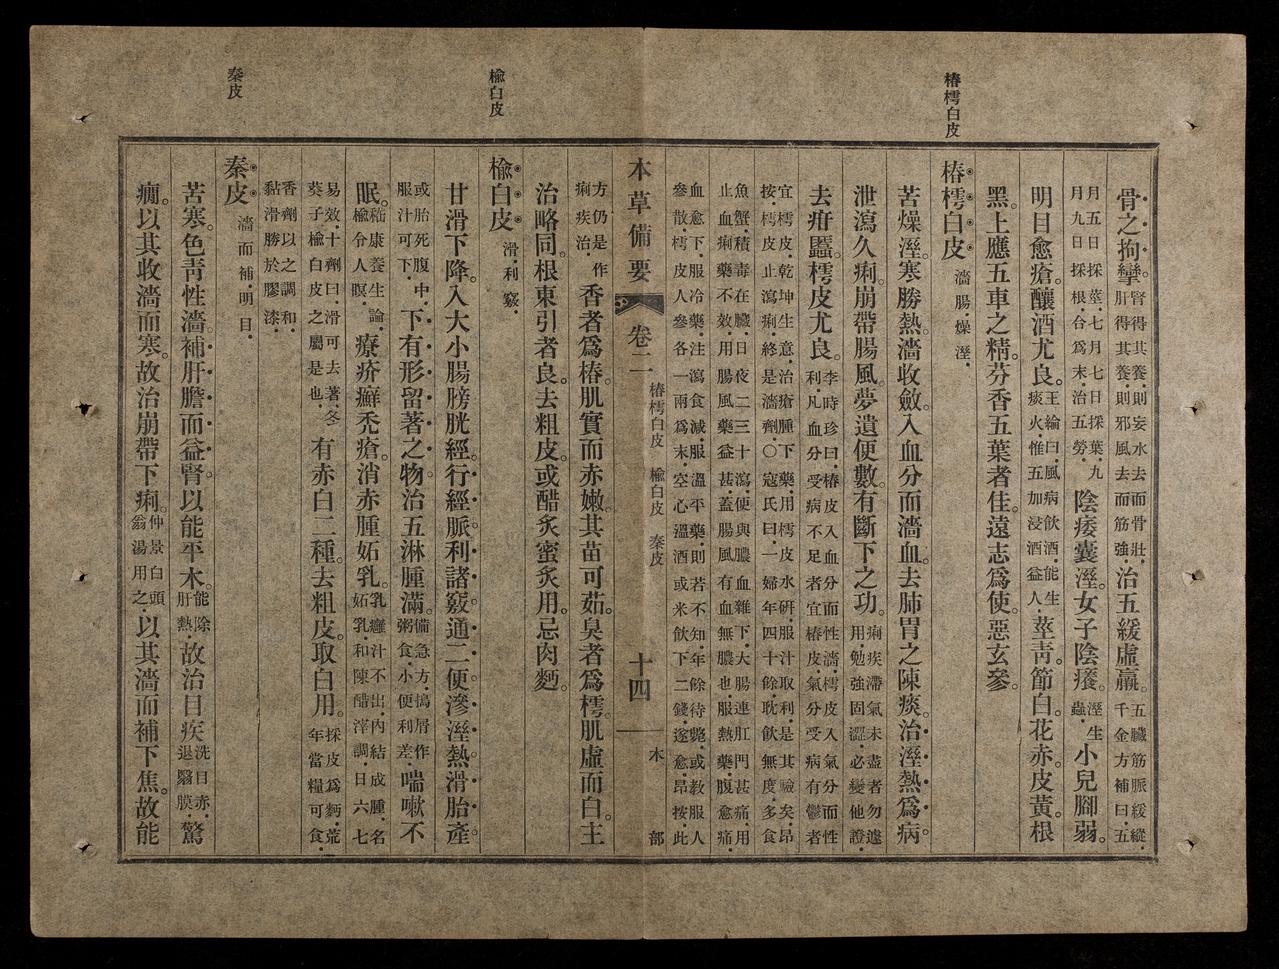 椿樗白皮
骨之拘攣。腎得其養、則妄水去而骨壯、肝得其養、則邪風去而筋強、治五緩虛羸。五臟筋脈緩縱、千金方補曰、五
月五日採莖、七月七日採葉、九月九日採根、合爲末、治五勞、陰痿囊溼。女子陰癢。溼生蟲、小兒腳弱。
明目愈瘡。釀酒尤良。王綸曰、風病飲酒、能生痰火、惟五加浸酒益人、莖靑。節白。花赤。皮黃。根
黑。上應五車之精。芬香五葉者佳。遠志爲使。惡玄參。
椿樗白皮 濇腸、燥溼、
苦燥溼。寒勝熱。濇收斂。入血分而濇血。去肺胃之陳痰。治溼熱爲病。
泄瀉久痢。崩帶腸風。夢遺便數。有斷下之功。痢疾滯氣未盡者勿遽用、勉強固澀、必變他證、
去疳䘌。樗皮尤良。李時珍曰、椿皮入血分而性濇、樗皮入氣分而性利、凡血分受病不足者宜椿皮、氣分受病有鬱者
宜樗皮、乾坤生意、治瘡腫下藥、用樗皮水硏、服汁取利、是其驗矣、昂按、樗皮止瀉痢、終是濇劑、〇寇氏曰、一婦年四十餘、耽飲無度、多食
魚蟹、積毒在臟、日夜二三十瀉、便與膿血雜下、大腸連肛門甚痛、用止血痢藥不效、用腸風藥益甚、蓋腸風有血無膿也、服熱藥、腹愈痛、
血愈下、服冷藥、注瀉食減、服溫平藥、則若不知、年餘待斃、或敎服人參散、樗皮人參各一兩爲末、空心溫酒或米飲下二錢、遂愈、昂按、此
本草備要 卷二 椿樗白皮 楡白皮 秦皮 十四 木部
方仍是作痢疾治、香者爲椿。肌實而赤嫩。其苗可茹。臭者爲樗。肌虛而白。主
治略同。根東引者良。去粗皮。或醋炙蜜炙用。忌肉麪。
楡白皮
楡白皮 滑、利竅、
甘滑下降。入大小腸膀胱經。行經脈。利諸竅。通二便。滲溼熱。滑胎產。
或胎死腹中、服汁可下、下有形留著之物。治五淋腫滿。備急方、擣屑作粥食、小便利差、喘嗽不
眠。嵇康養生論、楡令人瞑、療疥癬禿瘡。消赤腫妬乳。乳癰汁不出、內結成腫、名妬乳、和陳醋滓調、日六七
易效、十劑曰、滑可去著、冬葵子楡白皮之屬是也、有赤白二種。去粗皮。取白用。採皮爲麪、荒年當糧可食、
香劑以之調和、黏滑勝於膠漆、
秦皮
秦皮 濇而補、明目、
苦寒。色靑性濇。補肝膽而益腎。以能平木。能除肝熱、故治目疾洗目赤、退翳膜、驚
癇。以其收濇而寒。故治崩帶下痢。仲景白頭翁湯用之、以其濇而補下焦。故能